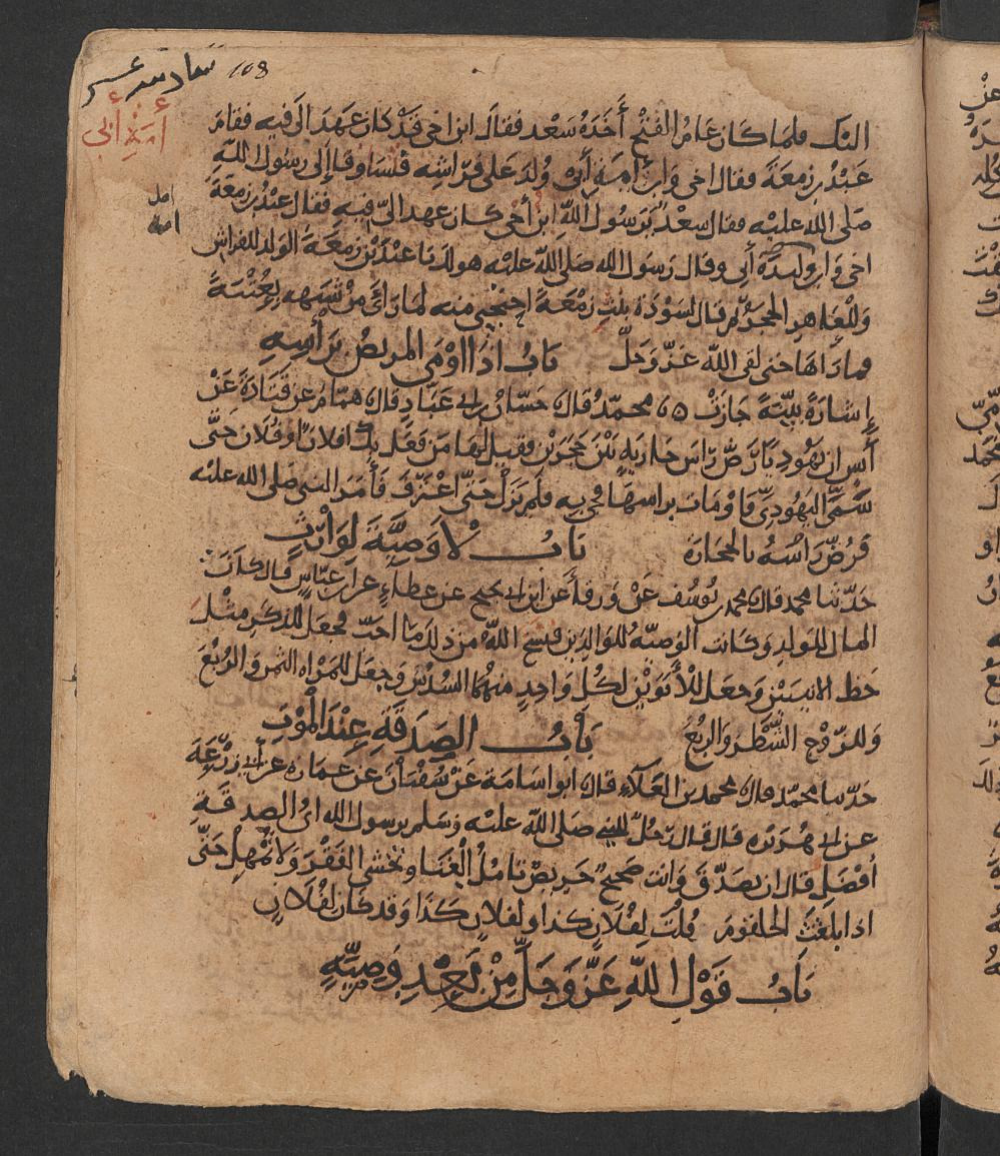 سادس عشر
108
أمة أبي
اليك فلما كان عام الفتح أخذه سعد فقال ابن اخي قد كان عهد الى فيه فقام
عبد بن زمعة فقال اخي وابن أمة أبي ولد على فراشه فتساوقا إلى رسول الله
امل
امة
صلى الله عليه فقال سعد يرسول الله ابن أخي كان عهد الي فيه فقال عبد بن زمعة
اخي وابن وليدة أبي وقال رسول الله صلى الله عليه هو لك يا عبد بن زمعة الولد للفراش
وللعاهر الحجر ثم قال لسودة بنت زمعة احتجبي منه لما رأى من شبهه بعتبة
فما رآها حتى لقى الله عز وجل باب اذا اومى المريض برأسه
إشارة بينة جازت محمد قال حسان بن ابي عباد قال همام عن قتادة عن
أنس ان يهوديا رض راس جارية بين حجرين فقيل لها من فعل بك افلان او فلان حتى
سمى اليهودي فاومات براسها فجي به فلم يزل حتى اعترف فأمر النبي صلى الله عليه
فرض راسه بالحجارة باب لا وصية لوارث
حدثنا محمد قال محمد بن يوسف عن ورقا عن ابن ابي نجيح عن عطاء عن ابن عباس قال كان
المال للولد وكانت الوصية للوالدين فنسخ الله من ذلك ما احب فجعل للذكر مثل
حظ الانثيين وجعل للأبوين لكل واحد منهما السدس وجعل للمراه الثمن والربع
وللزوج الشطر والربع باب الصدقة عند الموت
حدثنا محمد قال محمد بن العلاء قال ابو اسامة عن سفيان عن عماره عن ابي زرعة
عن ابي هريره قال قال رجل للنبي صلى الله عليه وسلم يرسول الله اي الصدقة
أفضل قال ان تصدق وانت صحيح حريص تامل الغنا وتخشى الفقر ولا تمهل حتى
اذا بلغت الحلقوم قلت لفلان كذا ولفلان كذا وقد كان لفلان
باب قول الله عز وجل من بعد وصية